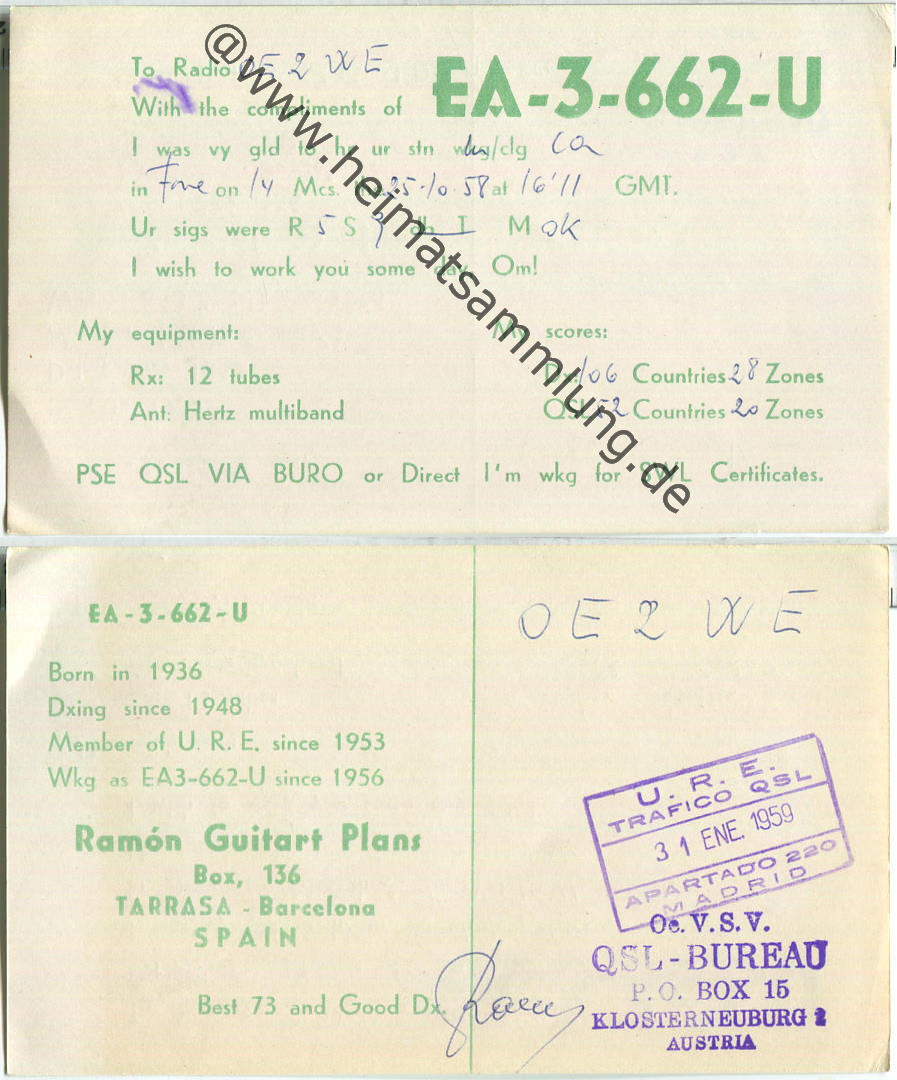 To Radio OE2WE
With the compliments of EA-3-662-U
I was vy gld to hr ur stn wkg/clg
in Fone on 14 Mcs. 25-10-58 at 16'11 GMT.
Ur sigs were R 5 S 9 db T M OK
I wish to work you some day, Om!
My equipment: My scores:
Rx: 12 tubes Dx: 106 Countries 28 Zones
Ant: Hertz multiband QSL 52 Countries 20 Zones
PSE QSL VIA BURO or Direct I'm wkg for SWL Certificates.
@www.heimatsammlung.de
EA-3-662-U
Born in 1936
Dxing since 1948
Member of U. R. E. since 1953
Wkg as EA3-662-U since 1956
Ramón Guitart Plans
Box, 136
TARRASA - Barcelona
SPAIN
Best 73 and Good Dx.
OE2WE
U. R. E.
TRAFICO QSL
31 ENE. 1959
APARTADO 220
MADRID
Oe. V. S. V.
QSL-BUREAU
P. O. BOX 15
KLOSTERNEUBURG 2
AUSTRIA